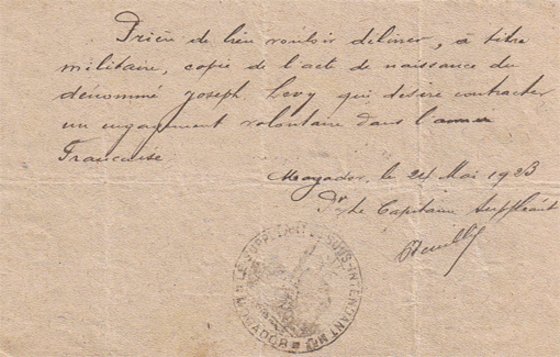 Prière de bien vouloir délivrer, à titre
militaire, copie de l'acte de naissance du
dénommé Joseph Levy qui désire contracter
un engagement volontaire dans l'armée
Française
Mogador, le 24 Mai 1923
Le Capitaine Suppléant
LE SUPPLÉANT SOUS-INTENDANT MRE
MOGADOR